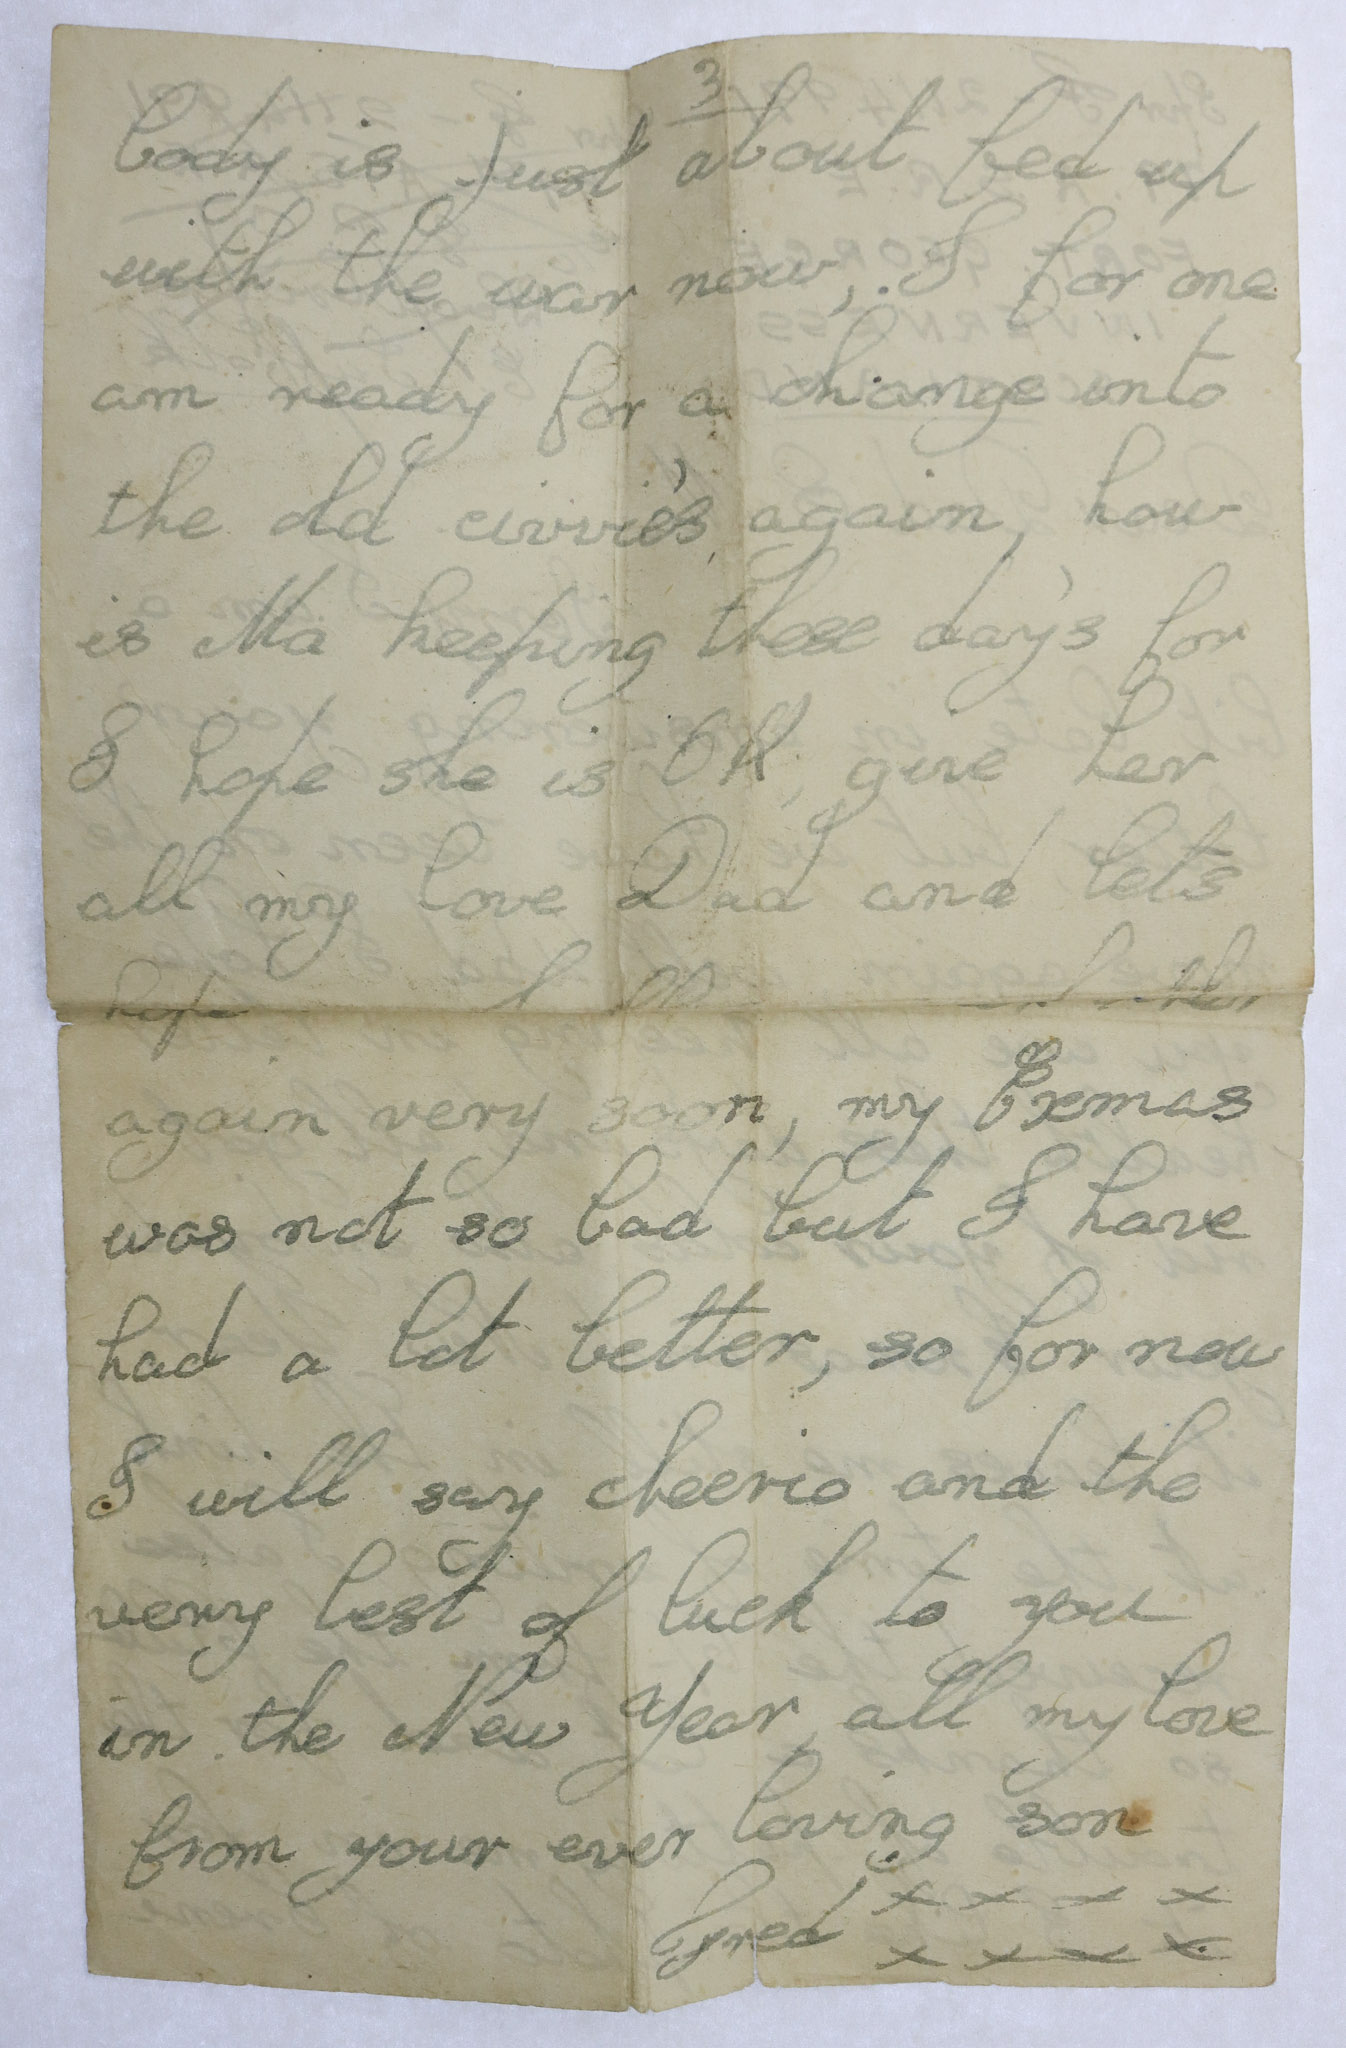 3
body is Just about fed up
with the war now, I for one
am ready for a change into
the old civvie's again, how
is Ma keeping these day's for
I hope she is OK, give her
all my love Dad and let's
hope
again very soon, my Exmas
was not so bad but I have
had a lot better, so for now
I will say cheerio and the
very best of luck to you
in the New Year, all my love
from your ever loving son
Fred x x x x
x x x x